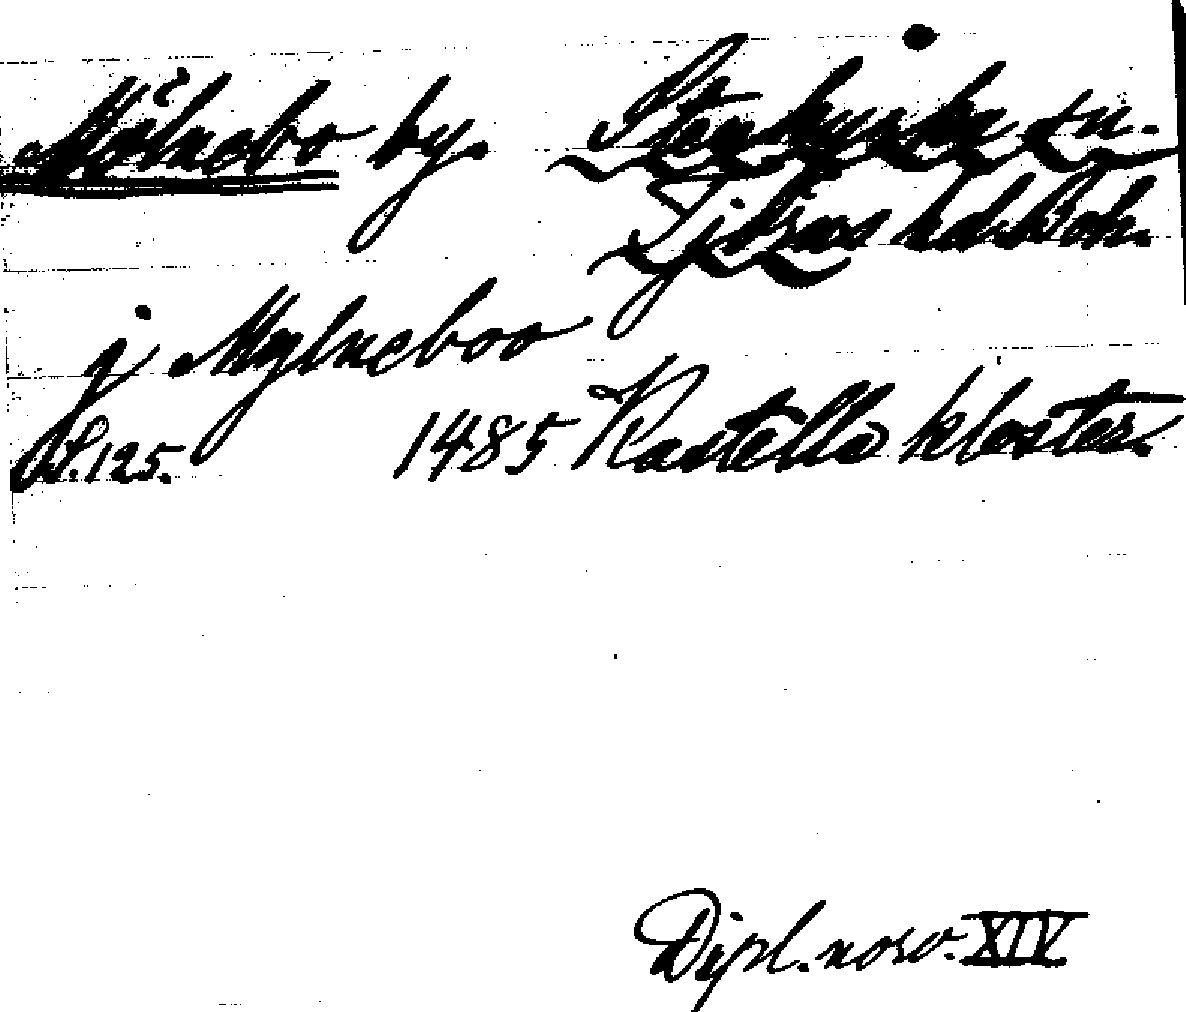 Mölnebo by. Stenkyrka sn.
Tjörns hd. Boh.
j Mylneboo
S. 125. 1485 Kastella kloster.
Dipl. norv. XIV